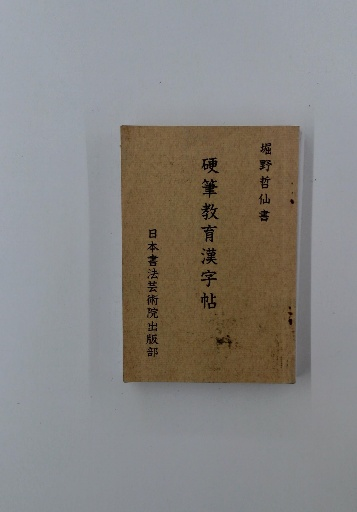 堀野哲仙書
硬筆教育漢字帖
日本書法芸術院出版部